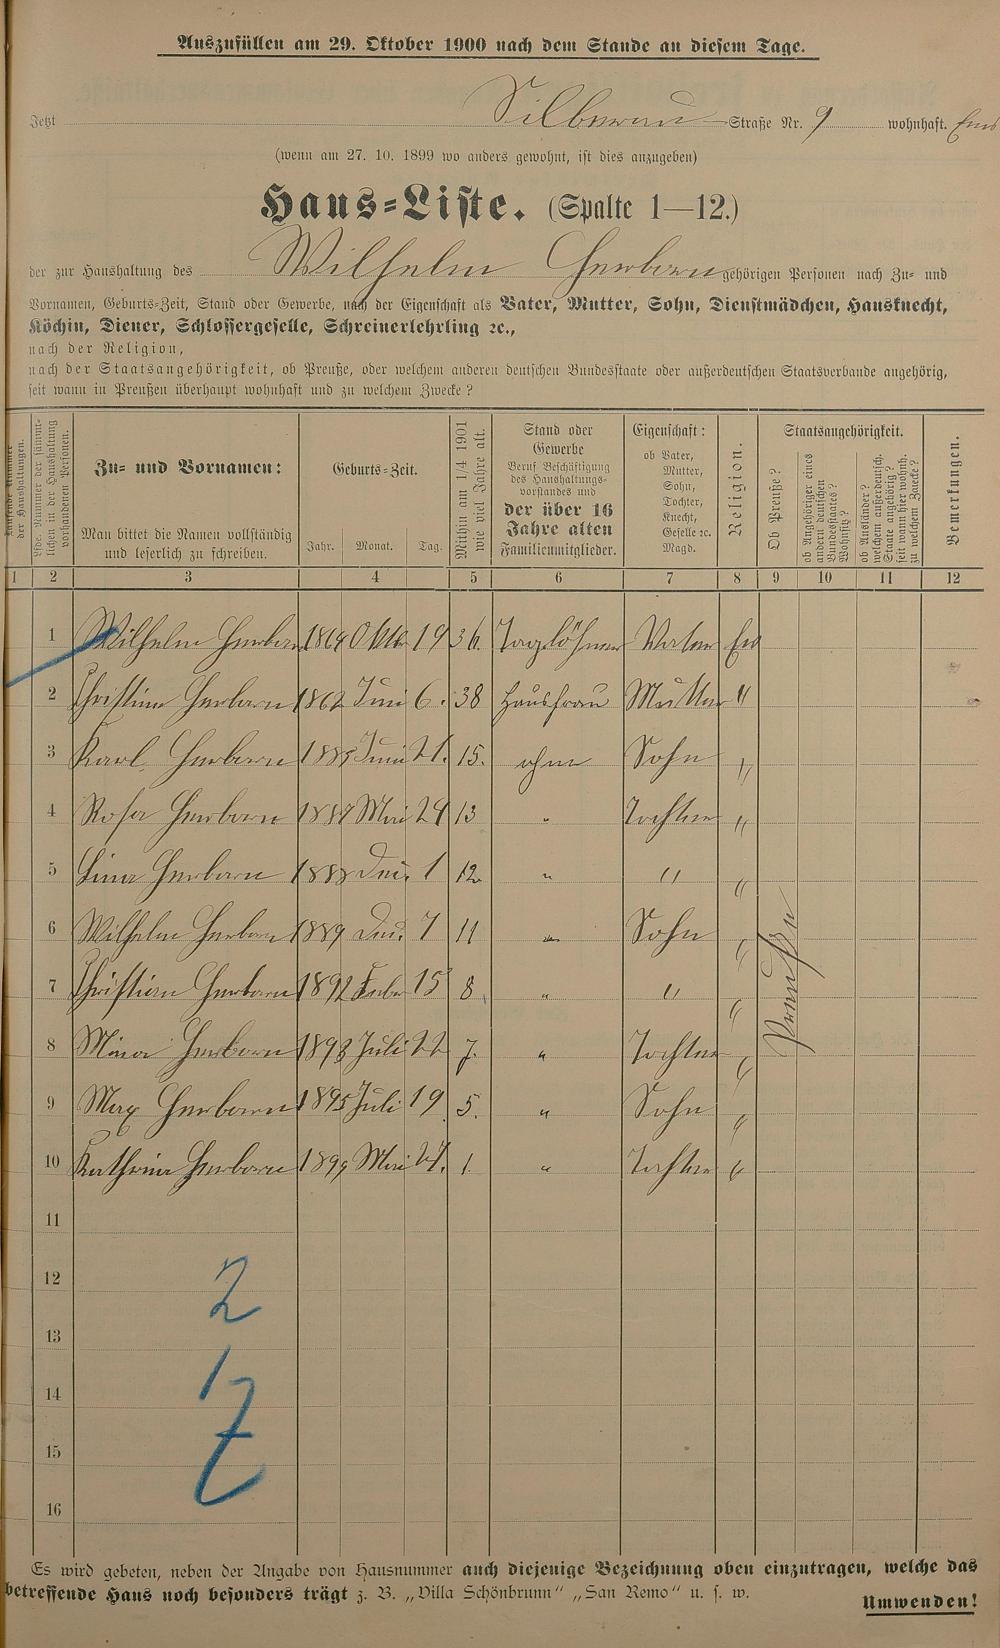 Auszufüllen am 29. Oktober 1900 nach dem Stande an diesem Tage.
Jetzt Silberau Straße Nr. 9 wohnhaft. Ems
(wenn am 27. 10. 1899 wo anders gewohnt, ist dies anzugeben)
Haus-Liste. (Spalte 1—12.)
der zur Haushaltung des Wilhelm Herborn gehörigen Personen nach Zu- und
Vornamen, Geburts-Zeit, Stand oder Gewerbe, nach der Eigenschaft als Vater, Mutter, Sohn, Dienstmädchen, Hausknecht,
Köchin, Diener, Schlossergeselle, Schreinerlehrling ꝛc.,
nach der Religion,
nach der Staatsangehörigkeit, ob Preuße, oder welchem anderen deutschen Bundesstaate oder außerdeutschen Staatsverbande angehörig,
seit wann in Preußen überhaupt wohnhaft und zu welchem Zwecke?
Laufende Nummer der Haushaltungen.
Lfde. Nummer der sämmtlichen in der Haushaltung vorhandenen Personen.
Zu- und Vornamen:
Man bittet die Namen vollständig
und leserlich zu schreiben.
Geburts-Zeit.
Jahr. Monat. Tag.
Mithin am 1/4 1901 wie viel Jahre alt.
Stand oder
Gewerbe
Beruf Beschäftigung
des Haushaltungs-
vorstandes und
der über 16
Jahre alten
Familienmitglieder.
Eigenschaft:
ob Vater,
Mutter,
Sohn,
Tochter,
Knecht,
Geselle ꝛc.
Magd.
Religion.
Staatsangehörigkeit.
Ob Preuße?
ob Angehöriger eines andern deutschen Bundesstaates? Wohnsitz?
ob Ausländer? welchem außerdeutsch. Staate angehörig? seit wann hier wohnh. zu welchem Zwecke?
Bemerkungen.
1 2 3 4 5 6 7 8 9 10 11 12
1 Wilhelm Herborn 1864 Oktb. 19 36. Taglöhner Vater Ev
2 Christine Herborn 1862 Juni 6. 38 Hausfrau Mutter "
3 Karl Herborn 1885 Juni 21. 15. ohne Sohn "
4 Rosa Herborn 1887 Mai 24 13 " Tochter "
5 Lina Herborn 1888 Dez. 1 12 " " "
6 Wilhelm Herborn 1889 Dez. 7 11 " Sohn "
7 Christian Herborn 1892 Febr 15 8 " " "
8 Mina Herborn 1893 Juli 22 7. " Tochter "
9 Max Herborn 1895 Juli 19 5. " Sohn "
10 Kathrina Herborn 1899 Mai 27. 1. " Tochter "
Preußen
11
12
13
14
15
16
2
1
7
Es wird gebeten, neben der Angabe von Hausnummer auch diejenige Bezeichnung oben einzutragen, welche das
betreffende Haus noch besonders trägt z. B. „Villa Schönbrunn" „San Remo" u. s. w.
Umwenden!